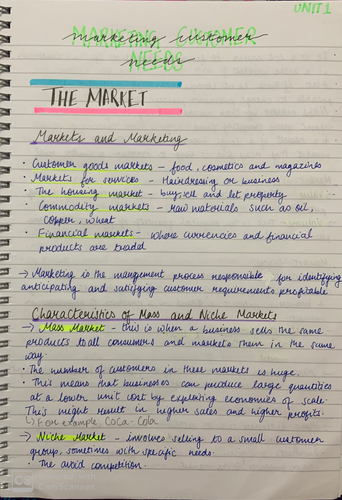 UNIT 1
MARKETING CUSTOMER
NEEDS
marketing customer
needs
THE MARKET
Markets and Marketing
• Customer goods markets - food, cosmetics and magazines
• Markets for services - Hairdressing or business
• The housing market - buy, sell and let property
• Commodity markets - raw materials such as oil,
copper, wheat
• Financial markets - where currencies and financial
products are traded
→ Marketing is the mangement process responsible for identifying
anticipating and satisfying customer requirements profitable
Characteristics of Mass and Niche Markets
→ Mass Market - this is when a business sells the same
products to all consumers and markets them in the same
way.
• The number of customers in these markets is huge.
• This means that businesses can produce large quantities
at a lower unit cost by exploiting economies of scale.
This might result in higher sales and higher profits.
↳ For example, Coca-Cola
→ Niche Market - involves selling to a small customer
group, sometimes with specific needs.
• The avoid competition.
CS CamScanner